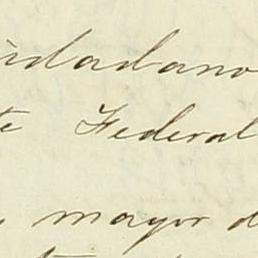 udadano
te Federal
mayor d